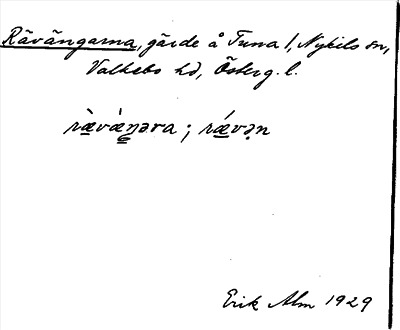 Rävängarna, gärde å Tuna 1, Nykils sn,
Valkebo hd, Österg. l.
ræ̀væ̀ŋəra ; rǽvən
Erik Alm 1929